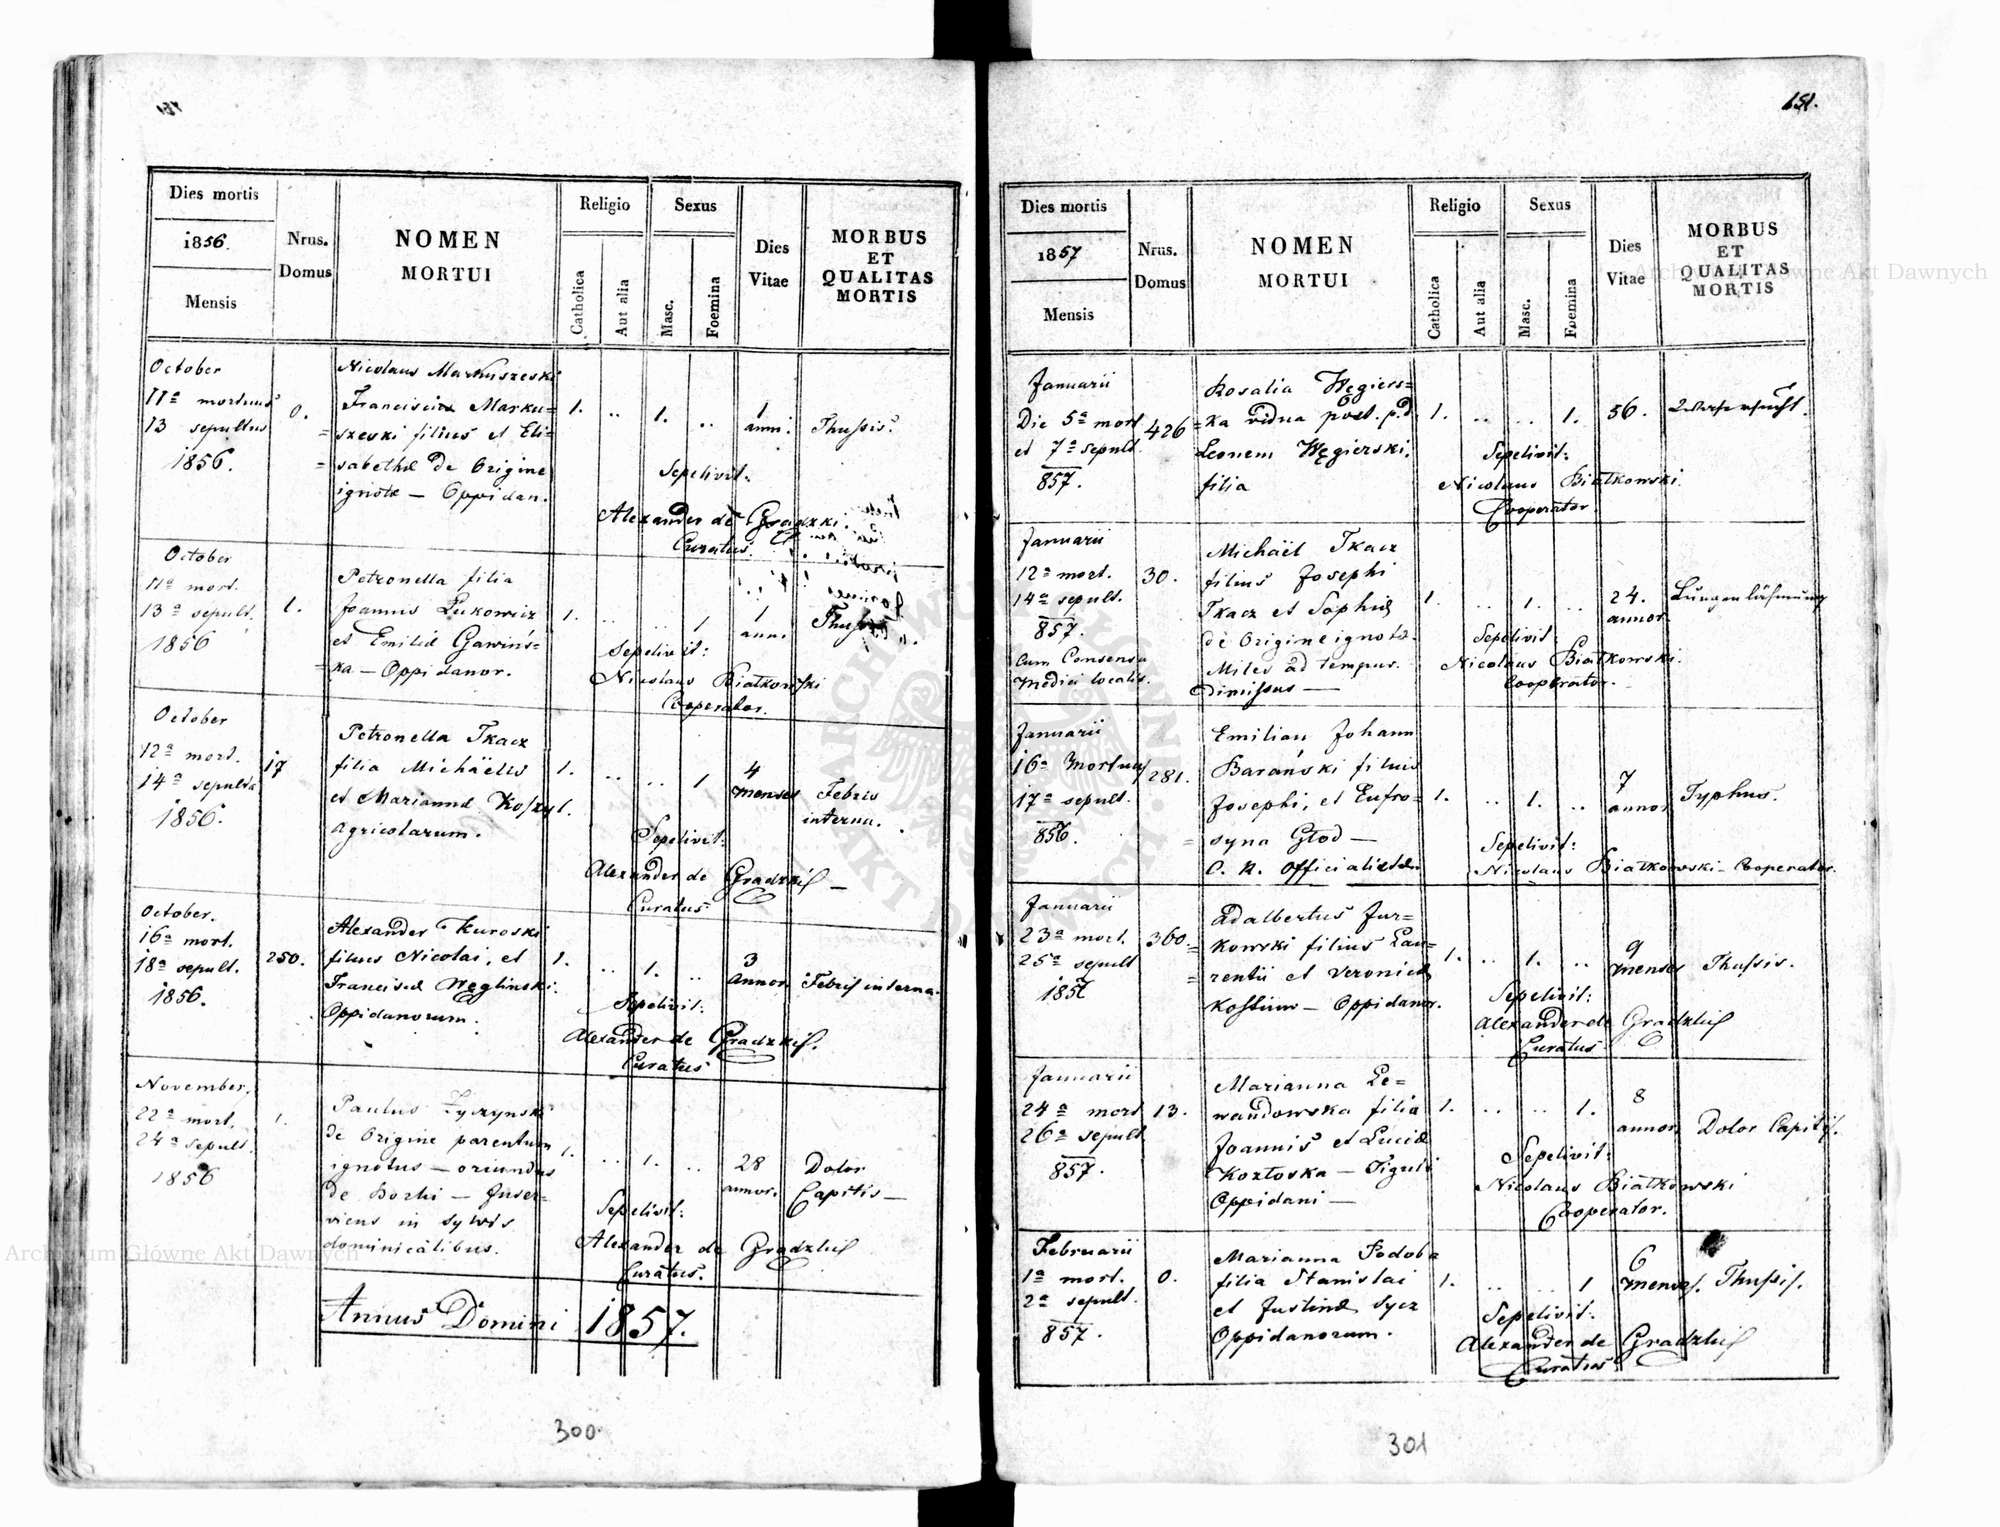 151.
Dies mortis
1856.
Mensis
Nrus.
Domus
NOMEN
MORTUI
Religio
Catholica
Aut alia
Sexus
Masc.
Foemina
Dies
Vitae
MORBUS
ET
QUALITAS
MORTIS
October
11a mortuus
13 sepultus
1856.
0.
Nicolaus Markuszeski
Francisci Marku=
=szeski filius et Eli=
=sabethæ de Origine
ignotæ — Oppidan.
1. .. 1. ..
1
anni.
Thussis.
Sepelivit:
Alexander de Gradzki
Curatus.
October
11a mort.
13a sepult.
1856
1.
Petronella filia
Joannis Lukowicz
et Emiliæ Gawińs=
=ka — Oppidanor.
1. .. .. 1
1
ann.
Thussis
Sepelivit:
Nicolaus Białkowski
Cooperator.
October
12a mort.
14a sepulta
1856.
17
Petronella Tkacz
filia Michäelis
et Mariannæ Koszyl.
Agricolarum.
1. .. .. 1
4
menses
Febris
interna.
Sepelivit:
Alexander de Gradzki —
Curatus
October.
16a mort.
18a sepult.
1856.
250.
Alexander Kuroski
filius Nicolai, et
Franciscæ Węglinski.
Oppidanorum.
1. .. 1. ..
3
annor.
Febris interna.
Sepelivit:
Alexander de Gradzki.
Curatus
November.
22a mort.
24a sepult.
1856
1.
Paulus Zyczynski
de Origine parentum
ignotus — oriundus
de — Inser=
viens in sylvis
dominicalibus.
1. .. 1. ..
28
annor.
Dolor
Capitis —
Sepelivit:
Alexander de Gradzki
Curatus.
Annus Domini 1857.
300.
151.
Dies mortis
1857
Mensis
Nrus.
Domus
NOMEN
MORTUI
Religio
Catholica
Aut alia
Sexus
Masc.
Foemina
Dies
Vitae
MORBUS
ET
QUALITAS
MORTIS
Januarii
Die 5a mort
et 7a sepult.
857.
426
Rosalia Węgiers=
=ka vidua post. p.d.
Leonem Węgierski.
filia
1. .. .. 1.
56.
Wassersucht.
Sepelivit:
Nicolaus Białkowski
Cooperator.
Januarii
12a mort.
14a sepult.
857.
Cum Consensu
Medici localis.
30.
Michäel Tkacz
filius Josephi
Tkacz et Sophiæ
de Origine ignota.
Miles ad tempus.
Dimissus —
1. .. 1. ..
24.
annor.
Lungenlähmung
Sepelivit:
Nicolaus Białkowski.
Cooperator.
Januarii
16a Mortuus
17a sepult.
856.
281.
Emilian Johann
Barański filius
Josephi, et Eufro=
=syna Głod —
C. R. Officialistæ
1. .. 1. ..
7
annor
Typhus.
Sepelivit:
Nicolaus Białkowski - Cooperator.
Januarii
23a mort.
25a sepult
360.
Adalbertus Jur=
=kowski filius Lau=
=rentii et Veronicæ
Kossiim — Oppidanor.
1. .. 1. ..
9
menses
Thussis.
Sepelivit:
Alexander de Gradzki
Curatus
Januarii
24a mort
26a sepult
857.
13.
Marianna Le=
wandowska filia
Joannis et Luciæ
Kozłoska — Figuli
Oppidani —
1. .. .. 1.
8
annor.
Dolor Capitis.
Sepelivit:
Nicolaus Białkowski
Cooperator.
Februarii
1a mort.
2a sepult.
857.
0.
Marianna Podoba
filia Stanislai
et Justinæ Sycz
Oppidanorum.
1. .. .. 1
6
menses.
Thussis.
Sepelivit:
Alexander de Gradzki
Curatus
301
Archiwum Główne Akt Dawnych
Archiwum Główne Akt Dawnych
ARCHIWUM GŁÓWNE AKT DAWNYCH